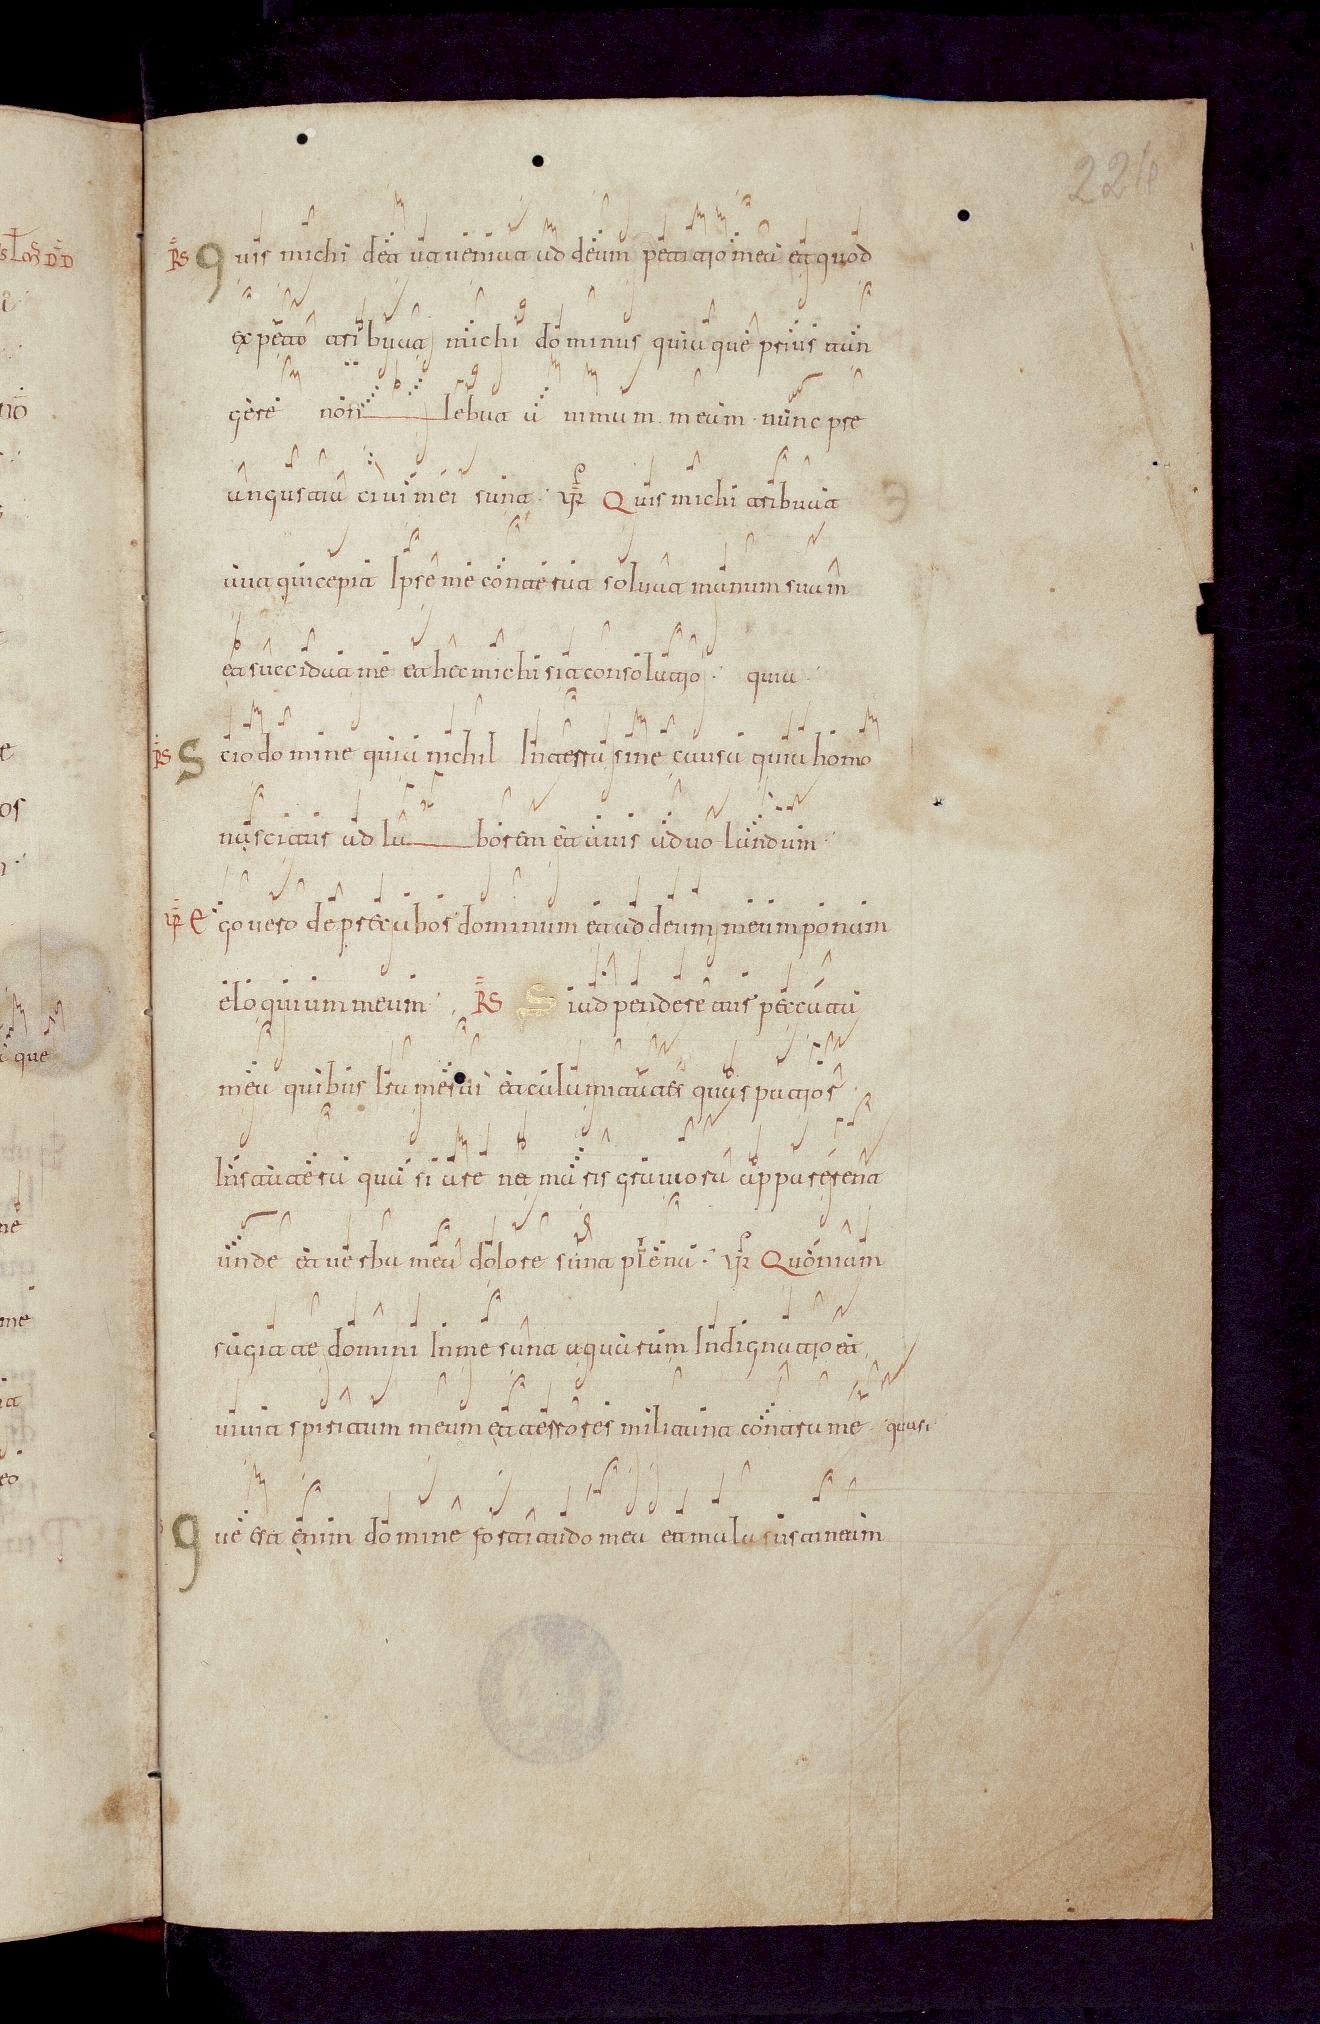 224
RS Quis michi det ut veniat ad deum petitio mea et quod
expecto tribuat michi dominus quia que prius tan
gere nolebat animam meam nunc pre
angustia cibi mei sunt VR Quis michi tribuat
ut qui cepit Ipse me conterat solvat manum suam
et succidat me et hec michi sit consolatio quia
RS Scio domine quia nichil In terra sine causa quia homo
nascitur ad laborem et avis ad volandum
VR Ego vero deprecabor dominum et ad deum meum ponam
eloquium meum RS Si adpenderetur peccata
mea quibus Iram merui et calamitates quas patior
In statera quasi arena maris graviora apparerent
unde et verba mea dolore sunt plena VR Quoniam
sagitte domini In me sunt quarum Indignatio et
vivit spiritum meum et terrores militant contra me quasi
Que est enim domine fortitudo mea et mala sustineam